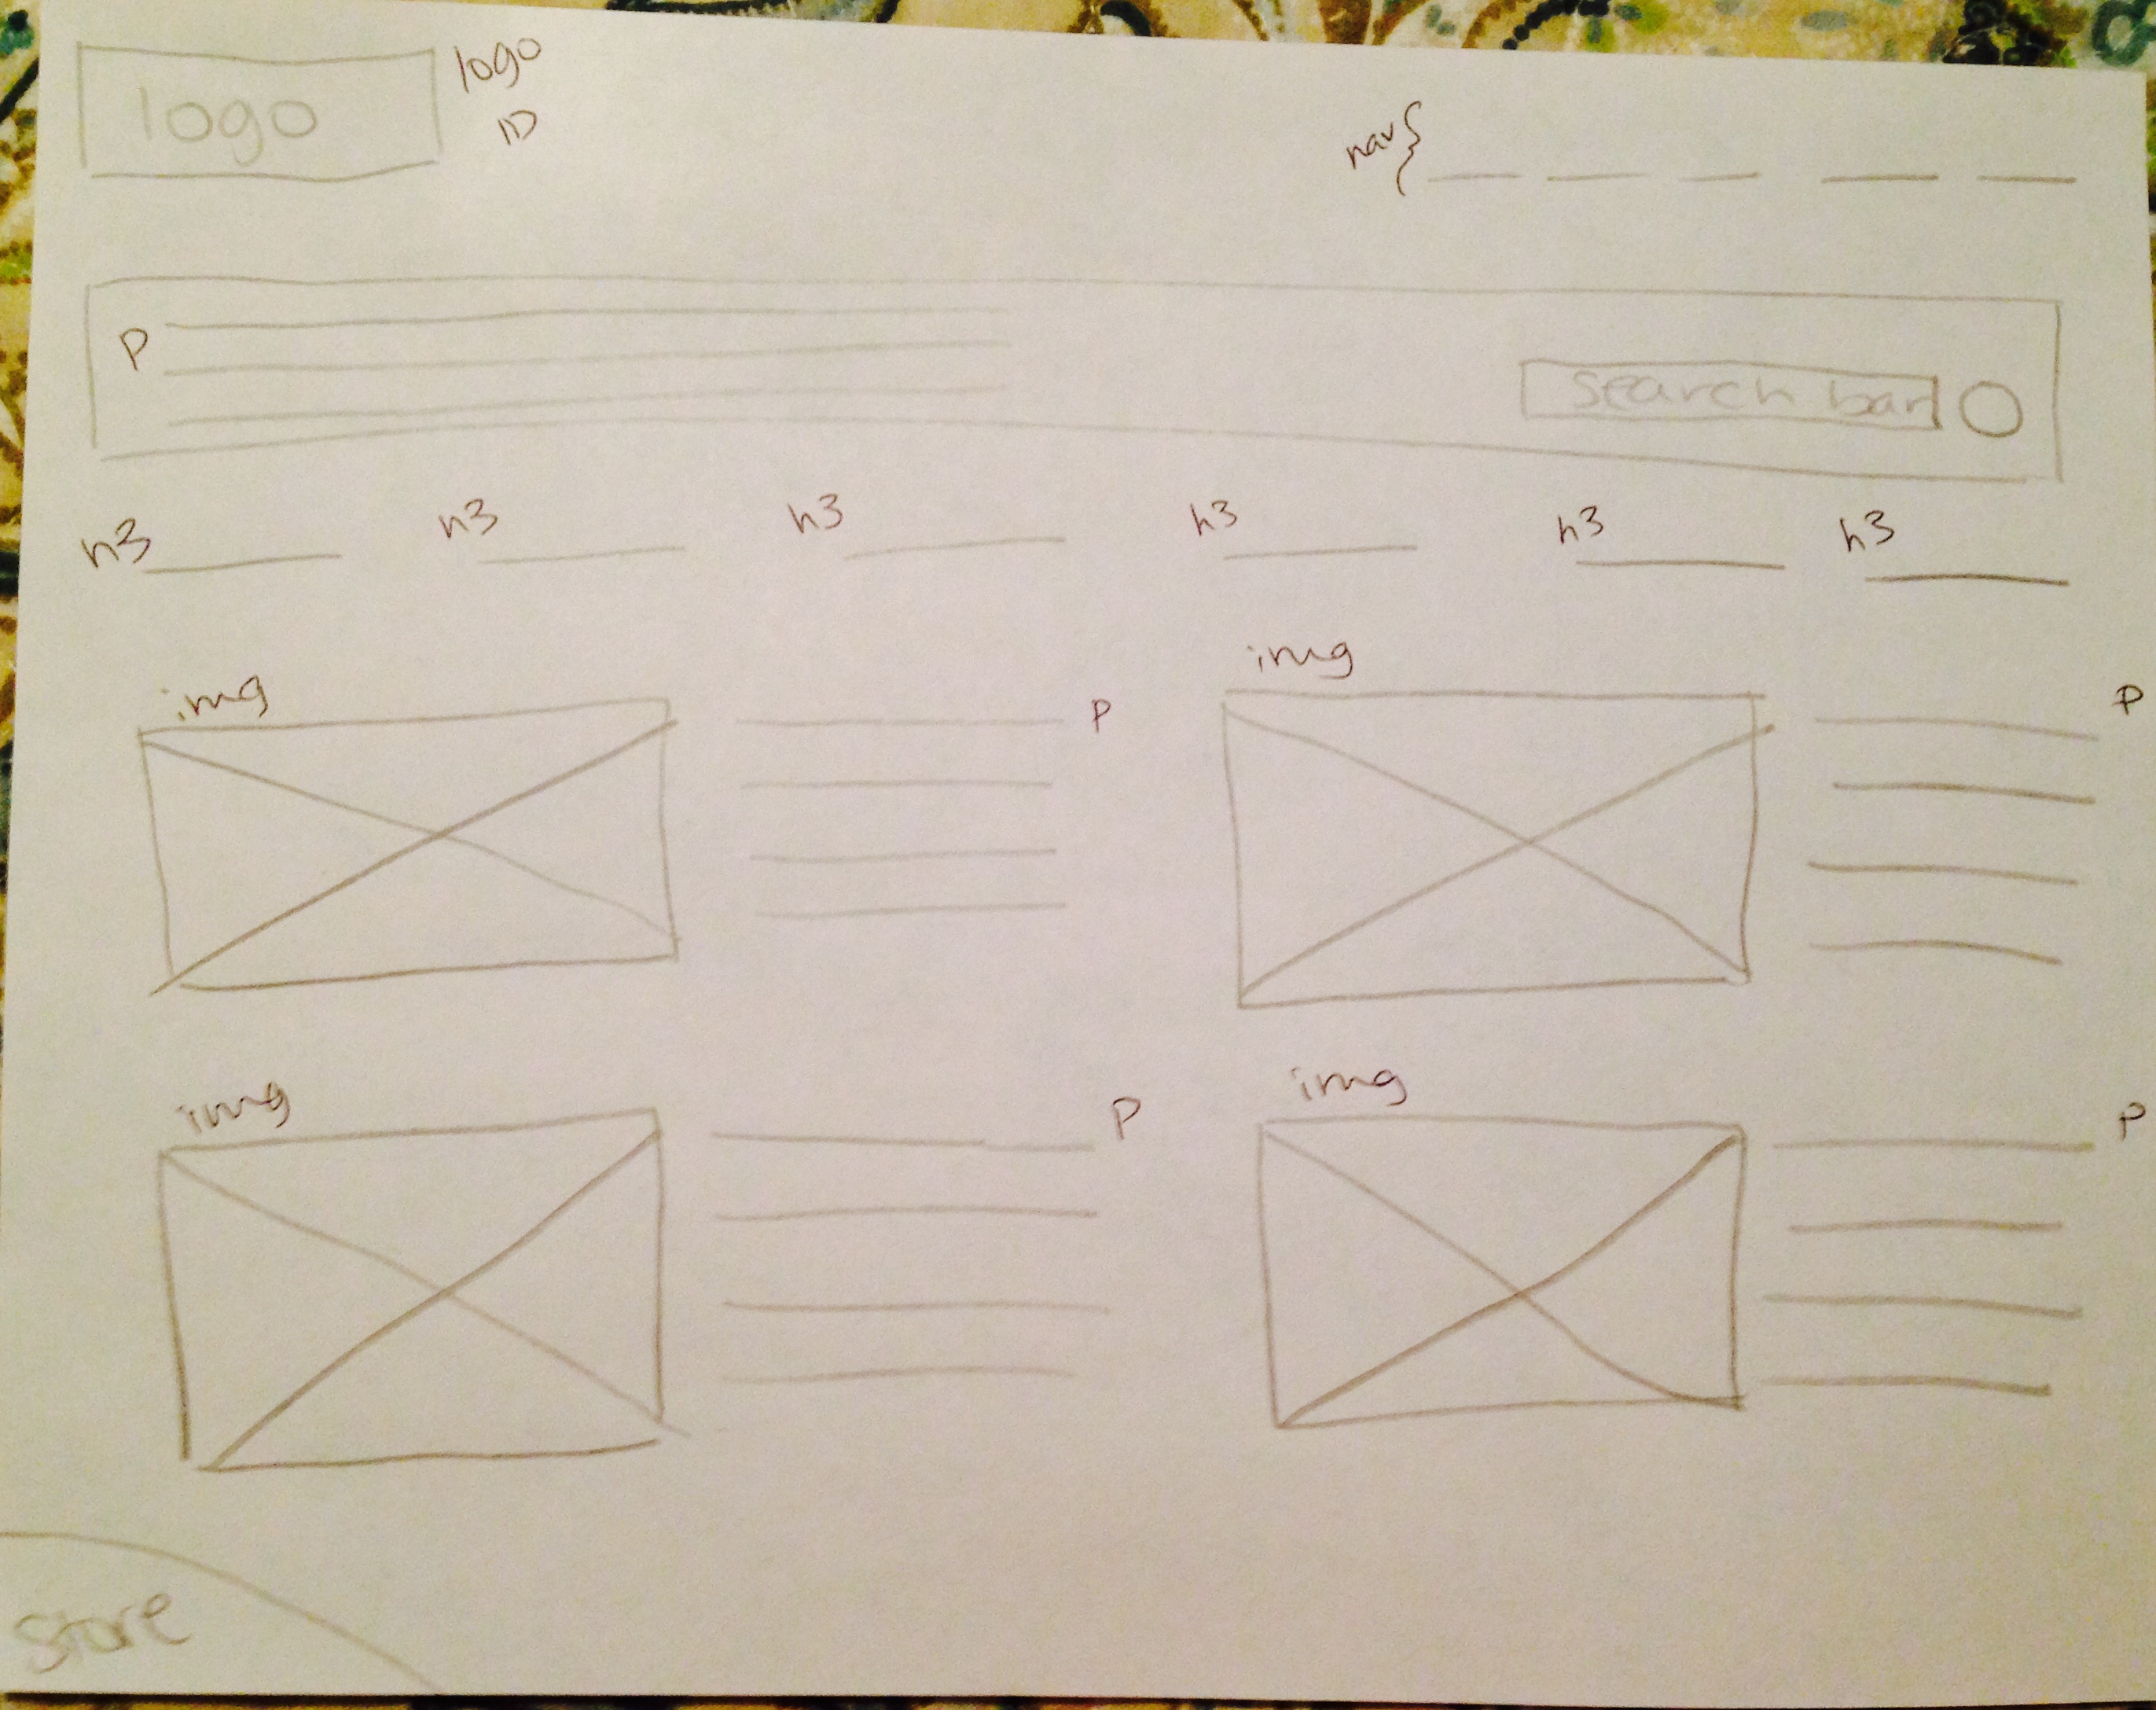 logo
logo
ID
nav
P
search bar
h3 h3 h3 h3 h3 h3
img P img P
img P img P
Store